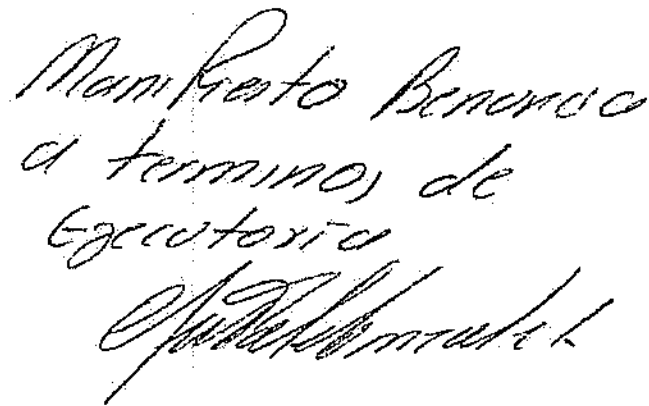 Manifiesto Renuncia
a terminos de
Ejecutoria